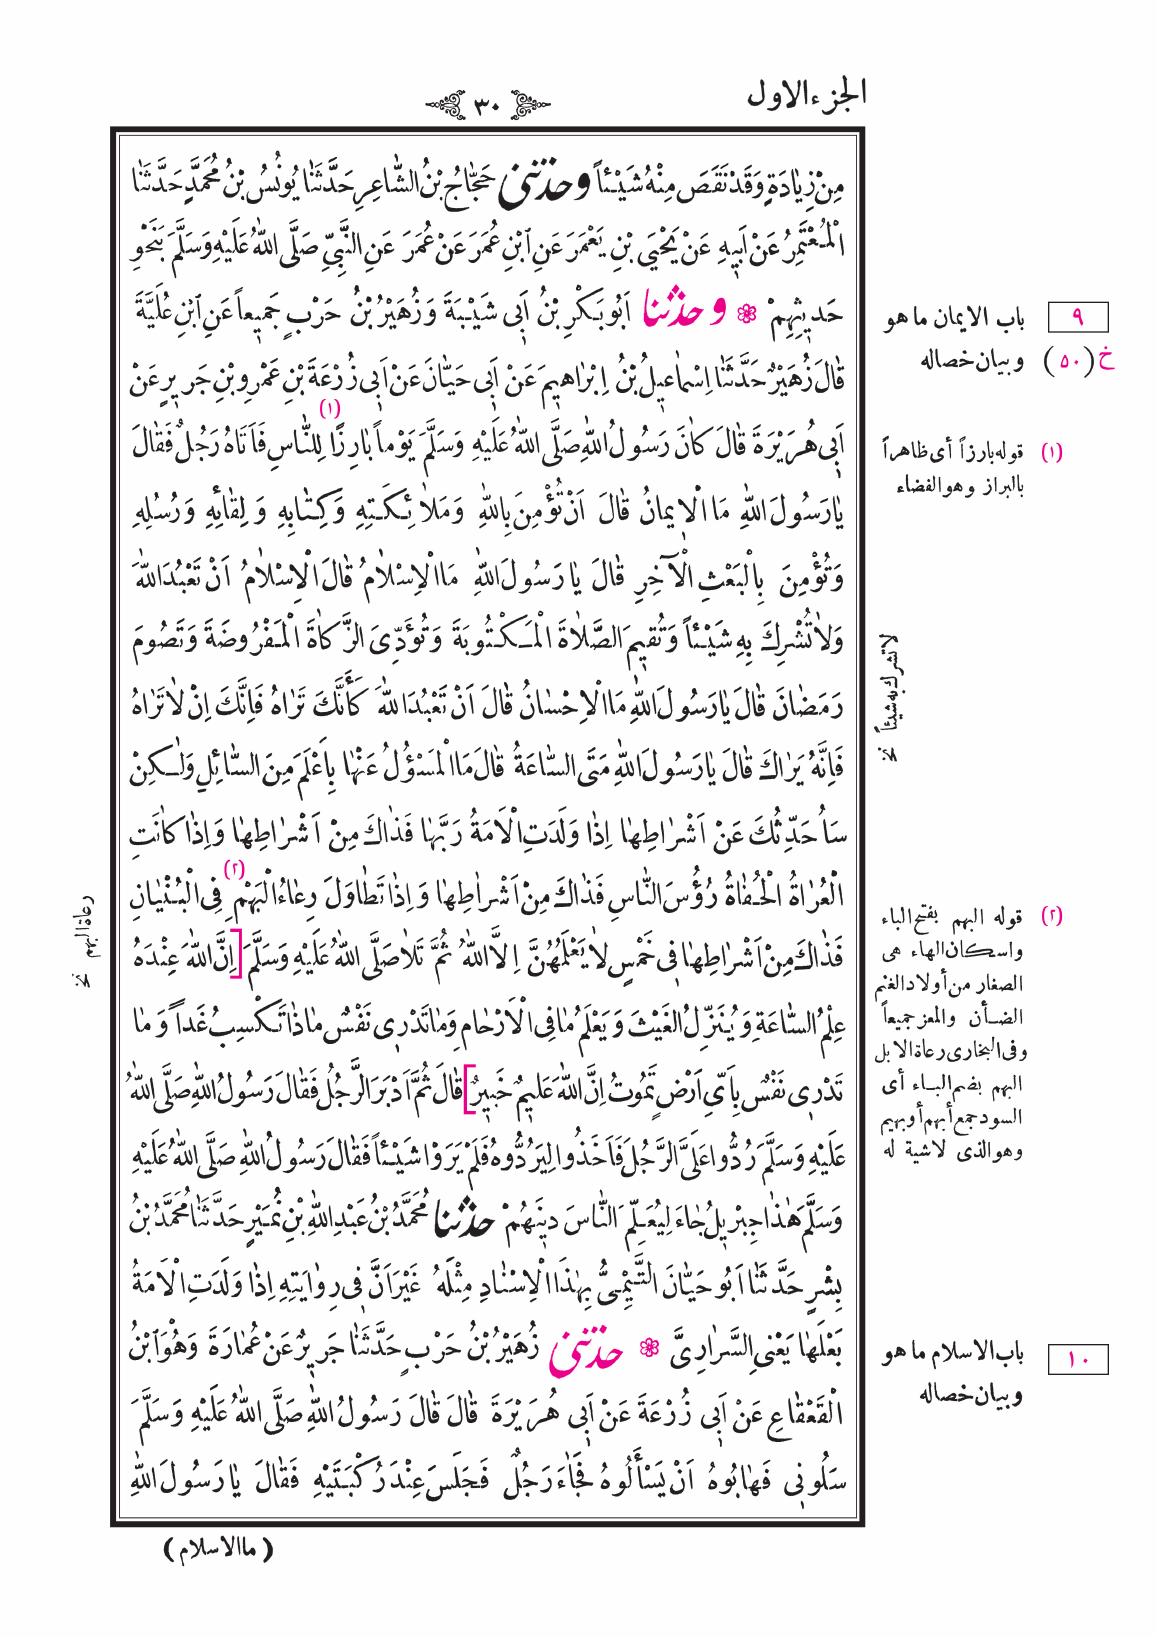 الجزء الاول
٣٠
مِنْ زِيَادَةٍ وَقَدْ نَقَصَ مِنْهُ شَيْئاً وحدثني حَجَّاجُ بْنُ الشَّاعِرِ حَدَّثَنَا يُونُسُ بْنُ مُحَمَّدٍ حَدَّثَنَا
الْمُعْتَمِرُ عَنْ اَبِيهِ عَنْ يَحْيَى بْنِ يَعْمَرَ عَنِ ابْنِ عُمَرَ عَنْ عُمَرَ عَنِ النَّبِيِّ صَلَّى اللهُ عَلَيْهِ وَسَلَّمَ بِنَحْوِ
حَدِيثِهِمْ ❁ وحدثنا اَبُو بَكْرِ بْنُ اَبِى شَيْبَةَ وَزُهَيْرُ بْنُ حَرْبٍ جَمِيعاً عَنِ ابْنِ عُلَيَّةَ
قَالَ زُهَيْرٌ حَدَّثَنَا اِسْمَاعِيلُ بْنُ اِبْرَاهِيمَ عَنْ اَبِى حَيَّانَ عَنْ اَبِى زُرْعَةَ بْنِ عَمْرِو بْنِ جَرِيرٍ عَنْ
اَبِى هُرَيْرَةَ قَالَ كَانَ رَسُولُ اللهِ صَلَّى اللهُ عَلَيْهِ وَسَلَّمَ يَوْماً بَارِزًا (١) لِلنَّاسِ فَاَتَاهُ رَجُلٌ فَقَالَ
يَا رَسُولَ اللهِ مَا الْاِيمَانُ قَالَ اَنْ تُؤْمِنَ بِاللهِ وَمَلَائِكَتِهِ وَكِتَابِهِ وَلِقَائِهِ وَرُسُلِهِ
وَتُؤْمِنَ بِالْبَعْثِ الْآخِرِ قَالَ يَا رَسُولَ اللهِ مَا الْاِسْلَامُ قَالَ الْاِسْلَامُ اَنْ تَعْبُدَ اللهَ
وَلَا تُشْرِكَ بِهِ شَيْئاً وَتُقِيمَ الصَّلَاةَ الْمَكْتُوبَةَ وَتُؤَدِّىَ الزَّكَاةَ الْمَفْرُوضَةَ وَتَصُومَ
رَمَضَانَ قَالَ يَا رَسُولَ اللهِ مَا الْاِحْسَانُ قَالَ اَنْ تَعْبُدَ اللهَ كَأَنَّكَ تَرَاهُ فَاِنَّكَ اِنْ لَا تَرَاهُ
فَاِنَّهُ يَرَاكَ قَالَ يَا رَسُولَ اللهِ مَتَى السَّاعَةُ قَالَ مَا الْمَسْؤُلُ عَنْهَا بِاَعْلَمَ مِنَ السَّائِلِ وَلٰكِنْ
سَاُحَدِّثُكَ عَنْ اَشْرَاطِهَا اِذَا وَلَدَتِ الْاَمَةُ رَبَّهَا فَذَاكَ مِنْ اَشْرَاطِهَا وَاِذَا كَانَتِ
الْعُرَاةُ الْحُفَاةُ رُؤُسَ النَّاسِ فَذَاكَ مِنْ اَشْرَاطِهَا وَاِذَا تَطَاوَلَ رِعَاءُ الْبَهْمِ (٢) فِى الْبُنْيَانِ
فَذَاكَ مِنْ اَشْرَاطِهَا فِى خَمْسٍ لَا يَعْلَمُهُنَّ اِلَّا اللهُ ثُمَّ تَلَا صَلَّى اللهُ عَلَيْهِ وَسَلَّمَ [اِنَّ اللهَ عِنْدَهُ
عِلْمُ السَّاعَةِ وَيُنَزِّلُ الْغَيْثَ وَيَعْلَمُ مَا فِى الْاَرْحَامِ وَمَا تَدْرِى نَفْسٌ مَاذَا تَكْسِبُ غَداً وَمَا
تَدْرِى نَفْسٌ بِاَىِّ اَرْضٍ تَمُوتُ اِنَّ اللهَ عَلِيمٌ خَبِيرٌ] قَالَ ثُمَّ اَدْبَرَ الرَّجُلُ فَقَالَ رَسُولُ اللهِ صَلَّى اللهُ
عَلَيْهِ وَسَلَّمَ رُدُّوا عَلَىَّ الرَّجُلَ فَاَخَذُوا لِيَرُدُّوهُ فَلَمْ يَرَوْا شَيْئاً فَقَالَ رَسُولُ اللهِ صَلَّى اللهُ عَلَيْهِ
وَسَلَّمَ هٰذَا جِبْرِيلُ جَاءَ لِيُعَلِّمَ النَّاسَ دِينَهُمْ حدثنا مُحَمَّدُ بْنُ عَبْدِ اللهِ بْنِ نُمَيْرٍ حَدَّثَنَا مُحَمَّدُ بْنُ
بِشْرٍ حَدَّثَنَا اَبُو حَيَّانَ التَّيْمِىُّ بِهٰذَا الْاِسْنَادِ مِثْلَهُ غَيْرَ اَنَّ فِى رِوَايَتِهِ اِذَا وَلَدَتِ الْاَمَةُ
بَعْلَهَا يَعْنِى السَّرَارِىَّ ❁ حدثني زُهَيْرُ بْنُ حَرْبٍ حَدَّثَنَا جَرِيرٌ عَنْ عُمَارَةَ وَهُوَ ابْنُ
الْقَعْقَاعِ عَنْ اَبِى زُرْعَةَ عَنْ اَبِى هُرَيْرَةَ قَالَ قَالَ رَسُولُ اللهِ صَلَّى اللهُ عَلَيْهِ وَسَلَّمَ
سَلُونِى فَهَابُوهُ اَنْ يَسْأَلُوهُ فَجَاءَ رَجُلٌ فَجَلَسَ عِنْدَ رُكْبَتَيْهِ فَقَالَ يَا رَسُولَ اللهِ
( ما الاسلام )
٩ باب الايمان ما هو
خ (٥٠) وبيان خصاله
(١) قوله بارزاً أى ظاهراً
بالبراز وهو الفضاء
لا تشرك به شيئاً نخ
(٢) قوله البهم بفتح الباء
واسكان الهاء هى
الصغار من أولاد الغنم
الضأن والمعز جميعاً
وفى البخارى رعاة الابل
البهم بضم الباء أى
السود جمع أبهم أو بهيم
وهو الذى لاشية له
رعاة البهم نخ
١٠ باب الاسلام ما هو
وبيان خصاله